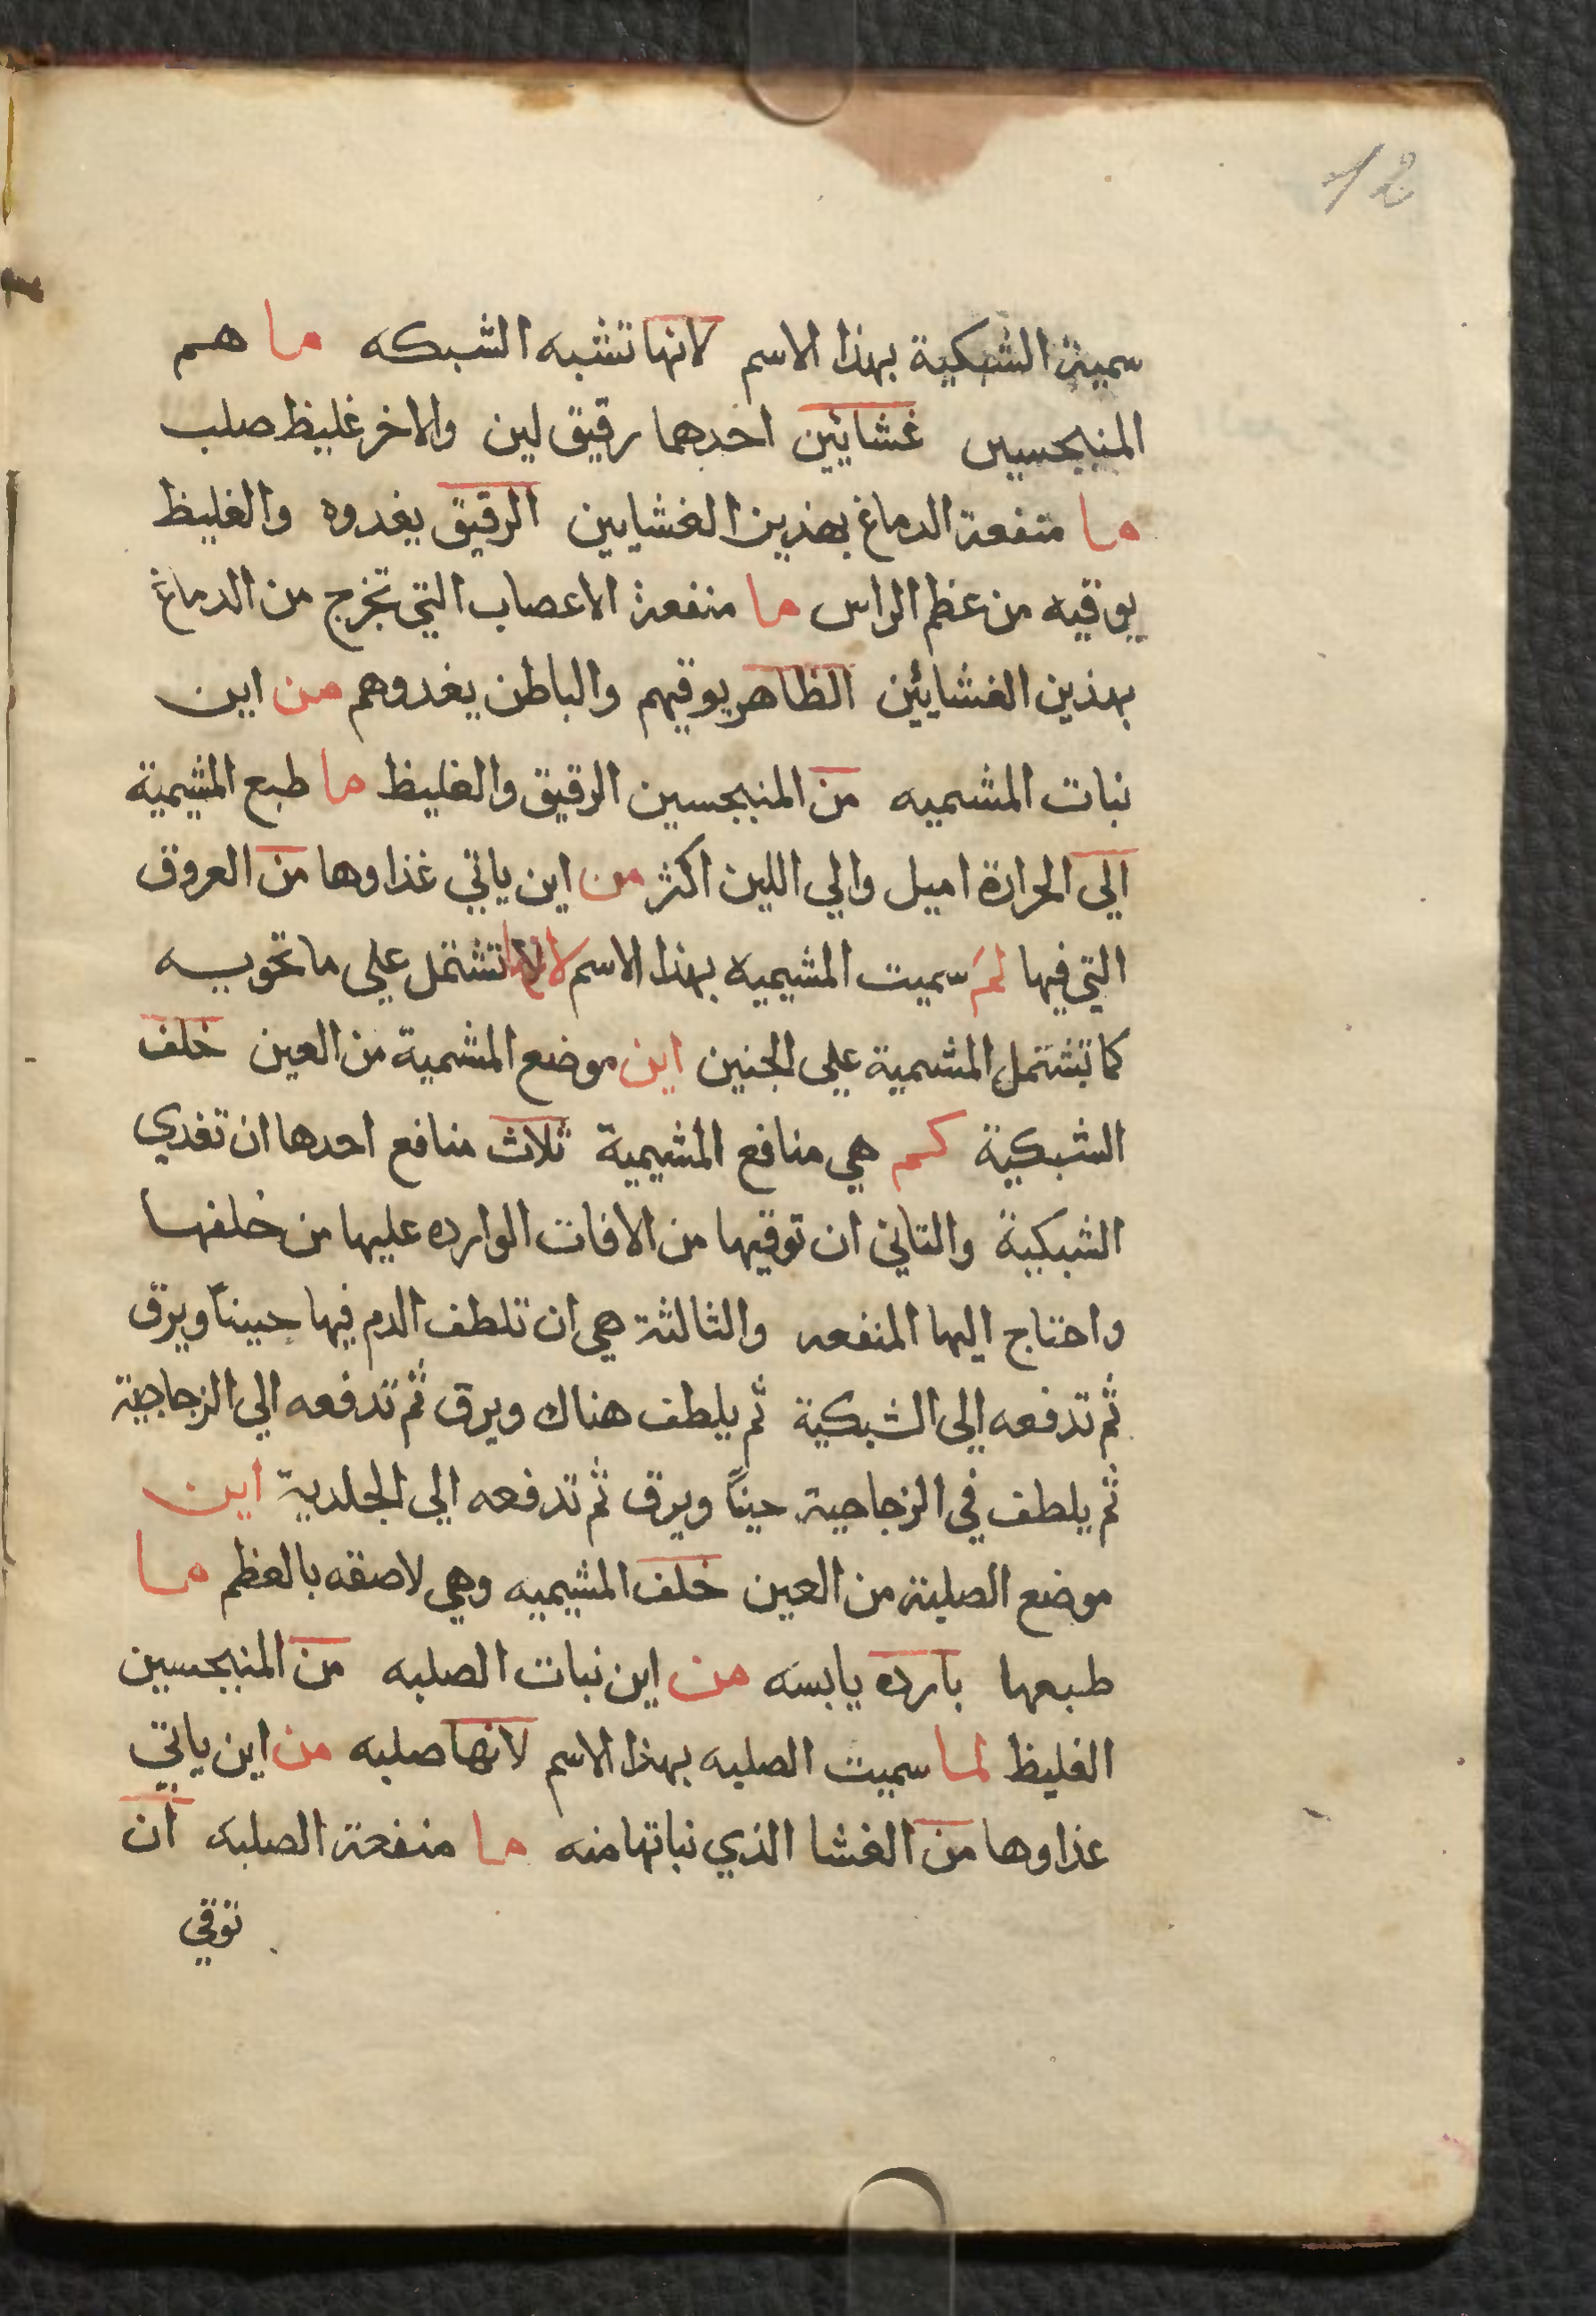 12
سمية الشبكية بهذا الاسم لانها تشبه الشبكه ما هم
المنيجسين غشايئن احدهما رقيق لين والاخر غليظ صلب
ما منفعة الدماغ بهذين الغشايين الرقيق يغدوه والغليظ
يوقيه من عظم الراس ما منفعة الاعصاب التي تخرج من الدماغ
بهذين الغشايئن الظاهر يوقيهم والباطن يغدوهم من اين
نبات المشميه من المنيجسين الرقيق والغليظ ما طبع المشيمية
الي الحرارة اميل والي اللين اكثر من اين ياتي غذاوها من العروق
التي فيها لم سميت المشيميه بهذا الاسم لانها تشتمل علي ما تحويه
كما تشتمل المشمية علي الجنين اين موضع المشمية من العين خلف
الشبكية كم هي منافع المشيمية ثلاث منافع احدها ان تغدي
الشبكية والتاني ان توقيها من الافات الوارده عليها من خلفها
واحتاج اليها المنفعه والثالثة هي ان تلطف الدم فيها حييناً ويرق
ثم تدفعه الي الشبكية ثم يلطف هناك ويرق ثم تدفعه الي الزجاجية
ثم يلطف في الزجاجية حيناً ويرق ثم تدفعه الي الجلدية اين
موضع الصلبة من العين خلف المشيميه وهي لاصقه بالعظم ما
طبعها بارده يابسه من اين نبات الصلبه من المنيجسين
الغليظ لما سميت الصلبه بهذا الاسم لانها صلبه من اين ياتي
غذاوها من الغشا الذي نباتها منه ما منفعة الصلبه ان
توقي